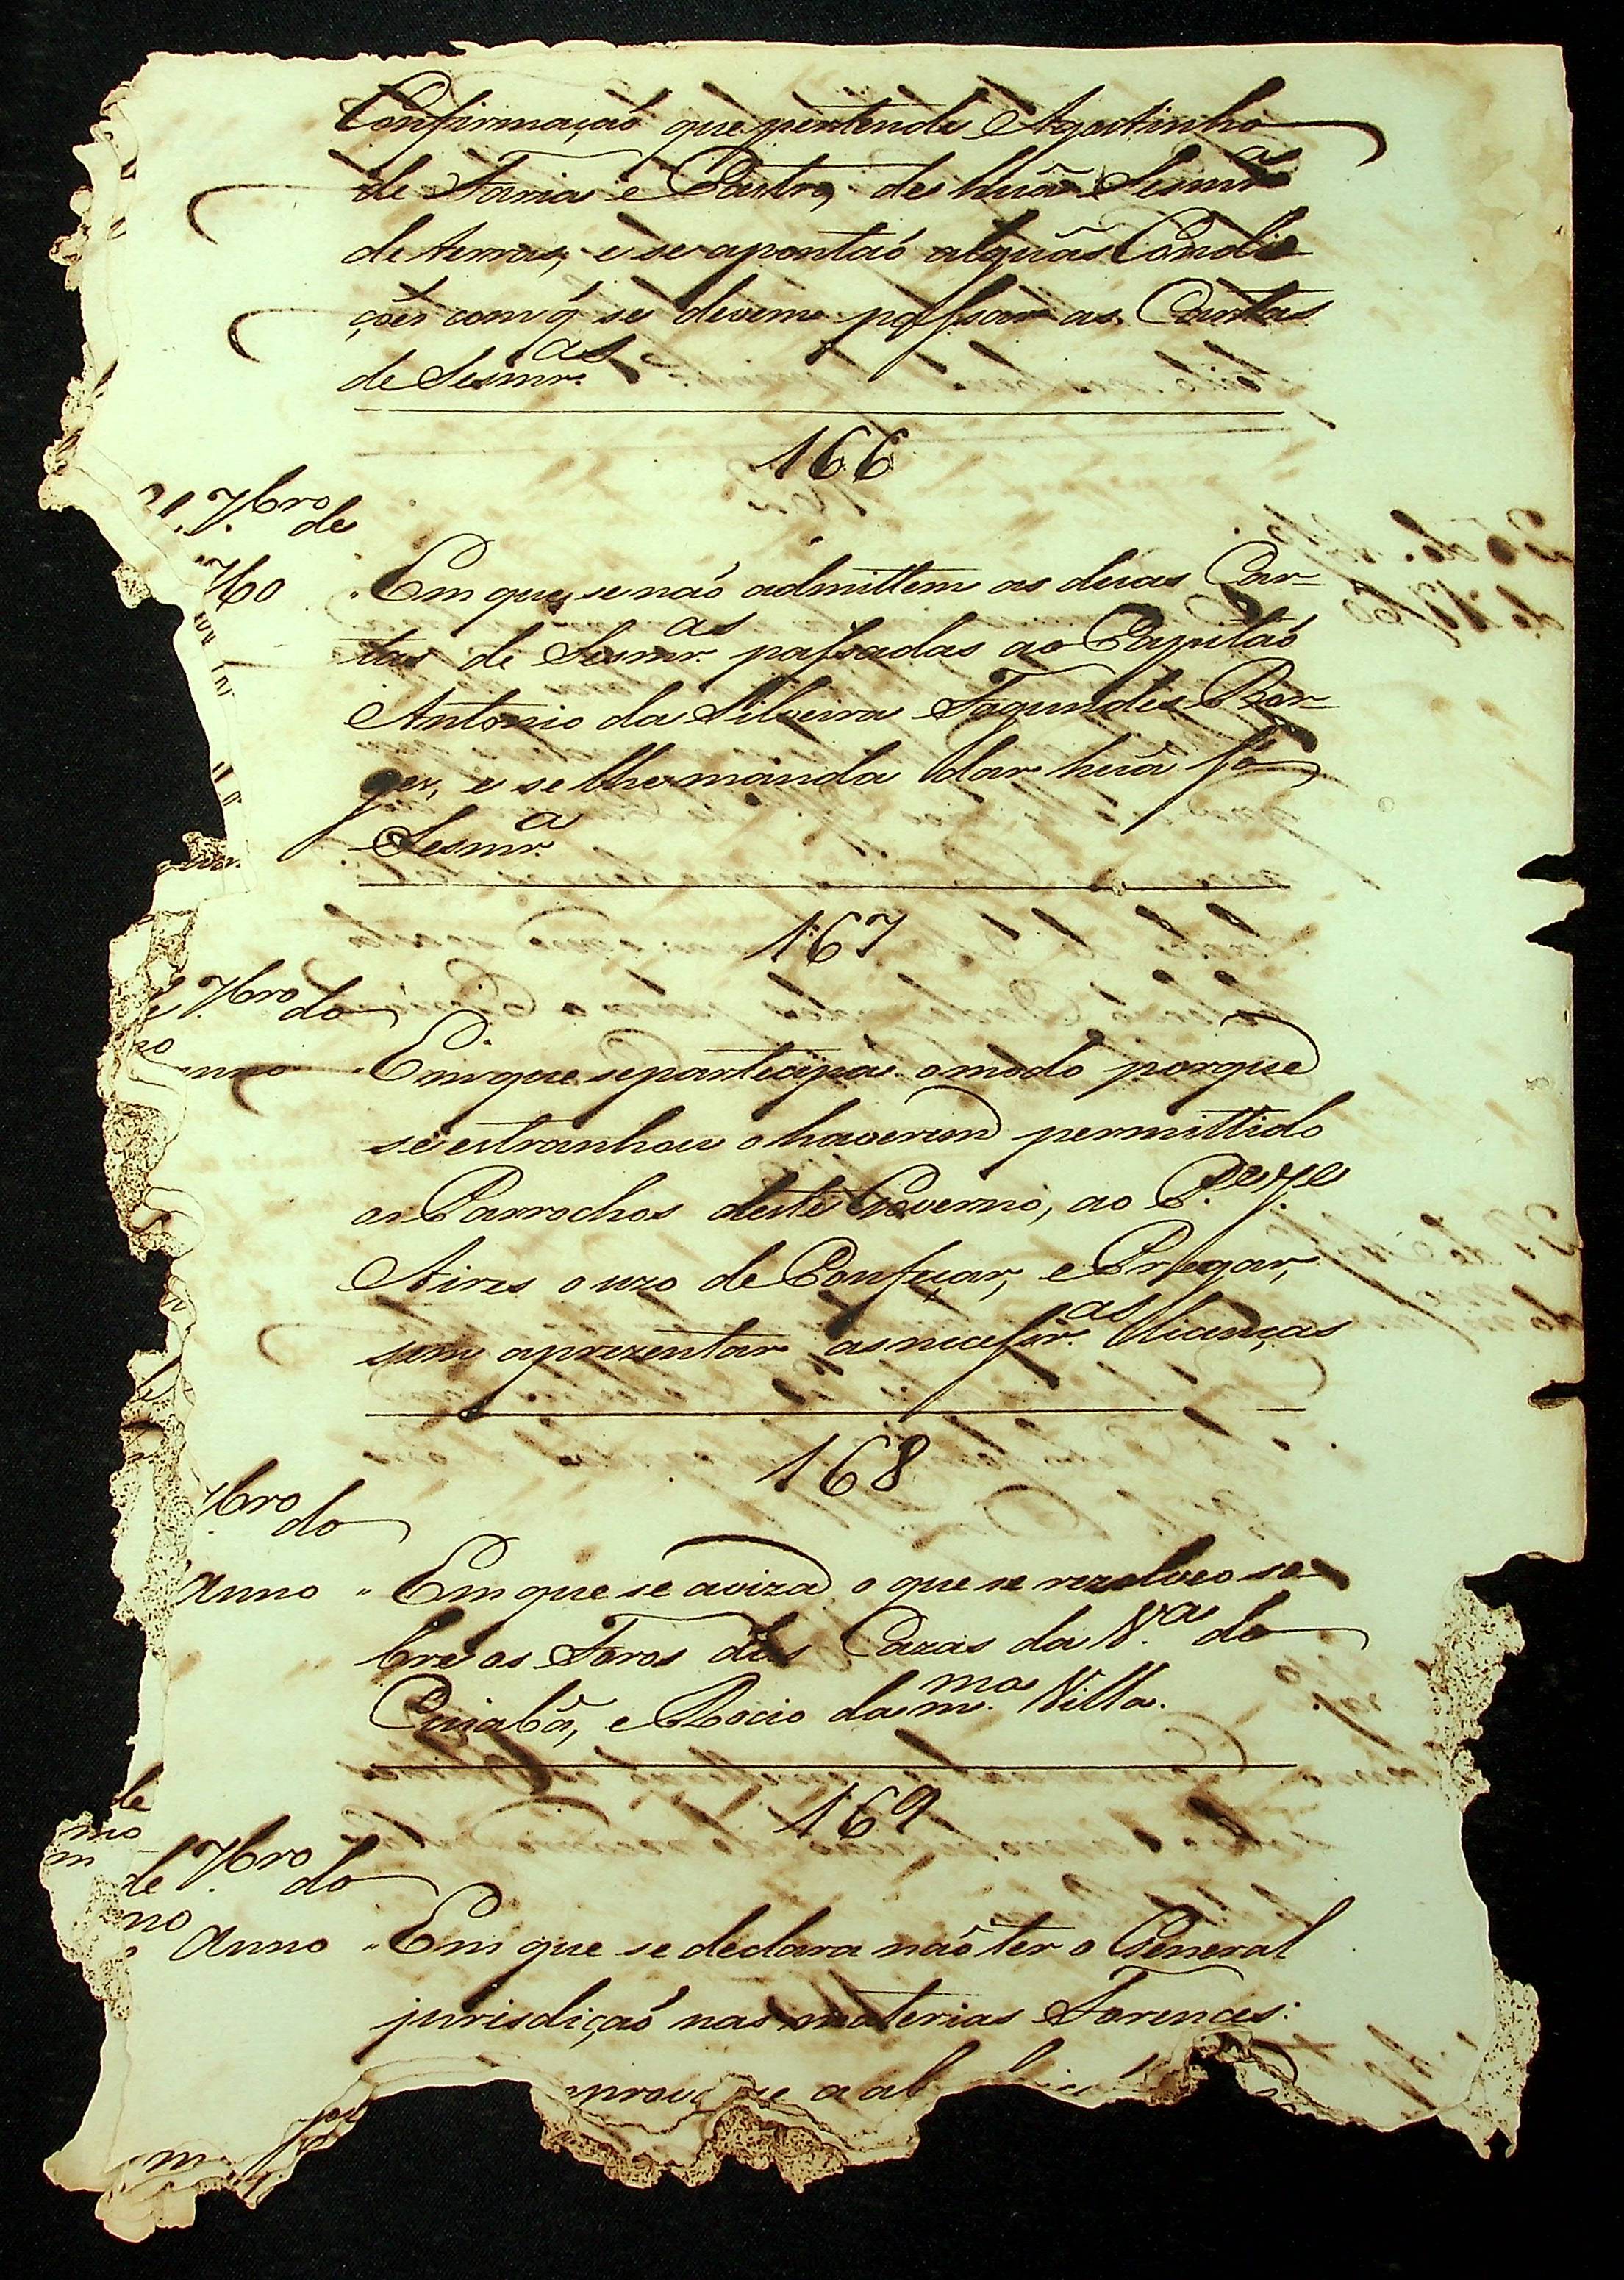 Confirmaçaõ que pertende Agostinho
de Faria e Castro, de huã Sesmr.ª
de terras, e se apontaõ alguãs Condi-
ções com q̃ se devem passar as Cartas
de Sesmr.as
166
7.bro de
760
Em que se naõ admittem as duas Car-
tas de Sesmr.as passadas ao Capitaõ
Antonio da Silveira Fagundes Bor-
ges, e se lhe manda dar huã só
Sesmr.a
167
7.bro do
nno
Em que se participa o modo porque
se estranhou o haverem permittido
os Parrochos deste Governo, ao P.e
Aires o uzo de Confeçar, e Prégar,
sem aprezentar as necessr.as licenças
168
7bro do
Anno
Em que se aviza o que se rezolveo so-
bre os Foros das Cazas da V.a do
Cuiabá, e Rocio da m.ma Villa.
169
de 7.bro do
Anno
Em que se declara naõ ter o General
jurisdiçaõ nas materias Forences: